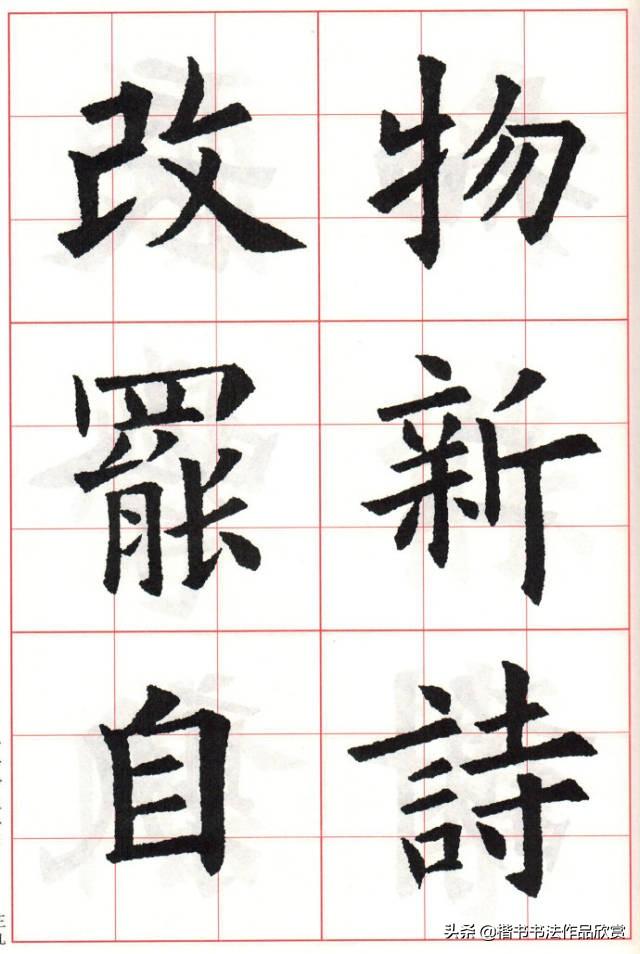 物新詩
改罷自
头条 @楷书书法作品欣赏